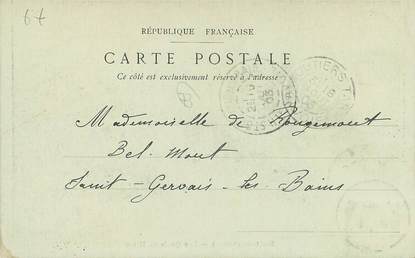 6t
RÉPUBLIQUE FRANÇAISE
CARTE POSTALE
Ce côté est exclusivement réservé à l'adresse
Mademoiselle de Rougemont
Bel-Mont
Saint-Gervais-les Bains